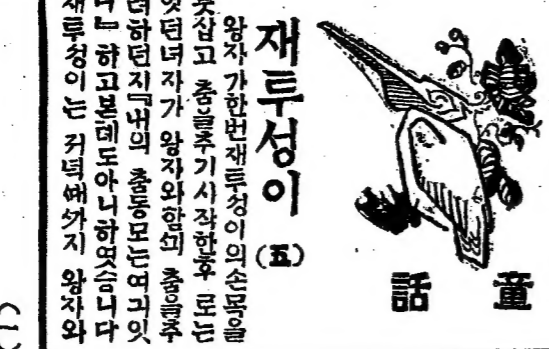 童話
재투성이 (五)
왕자가한번재투성이의손목을
붓삽고 춤을추기시작한후 로는
잇던녀자가 왕자와함ᄭᅴ 춤을추
려하던지『내의 춤동모는여긔잇
다』하고본데도아니하엿슴니다
재투성이는 저녁ᄯᅢᄭᅡ지 왕자와